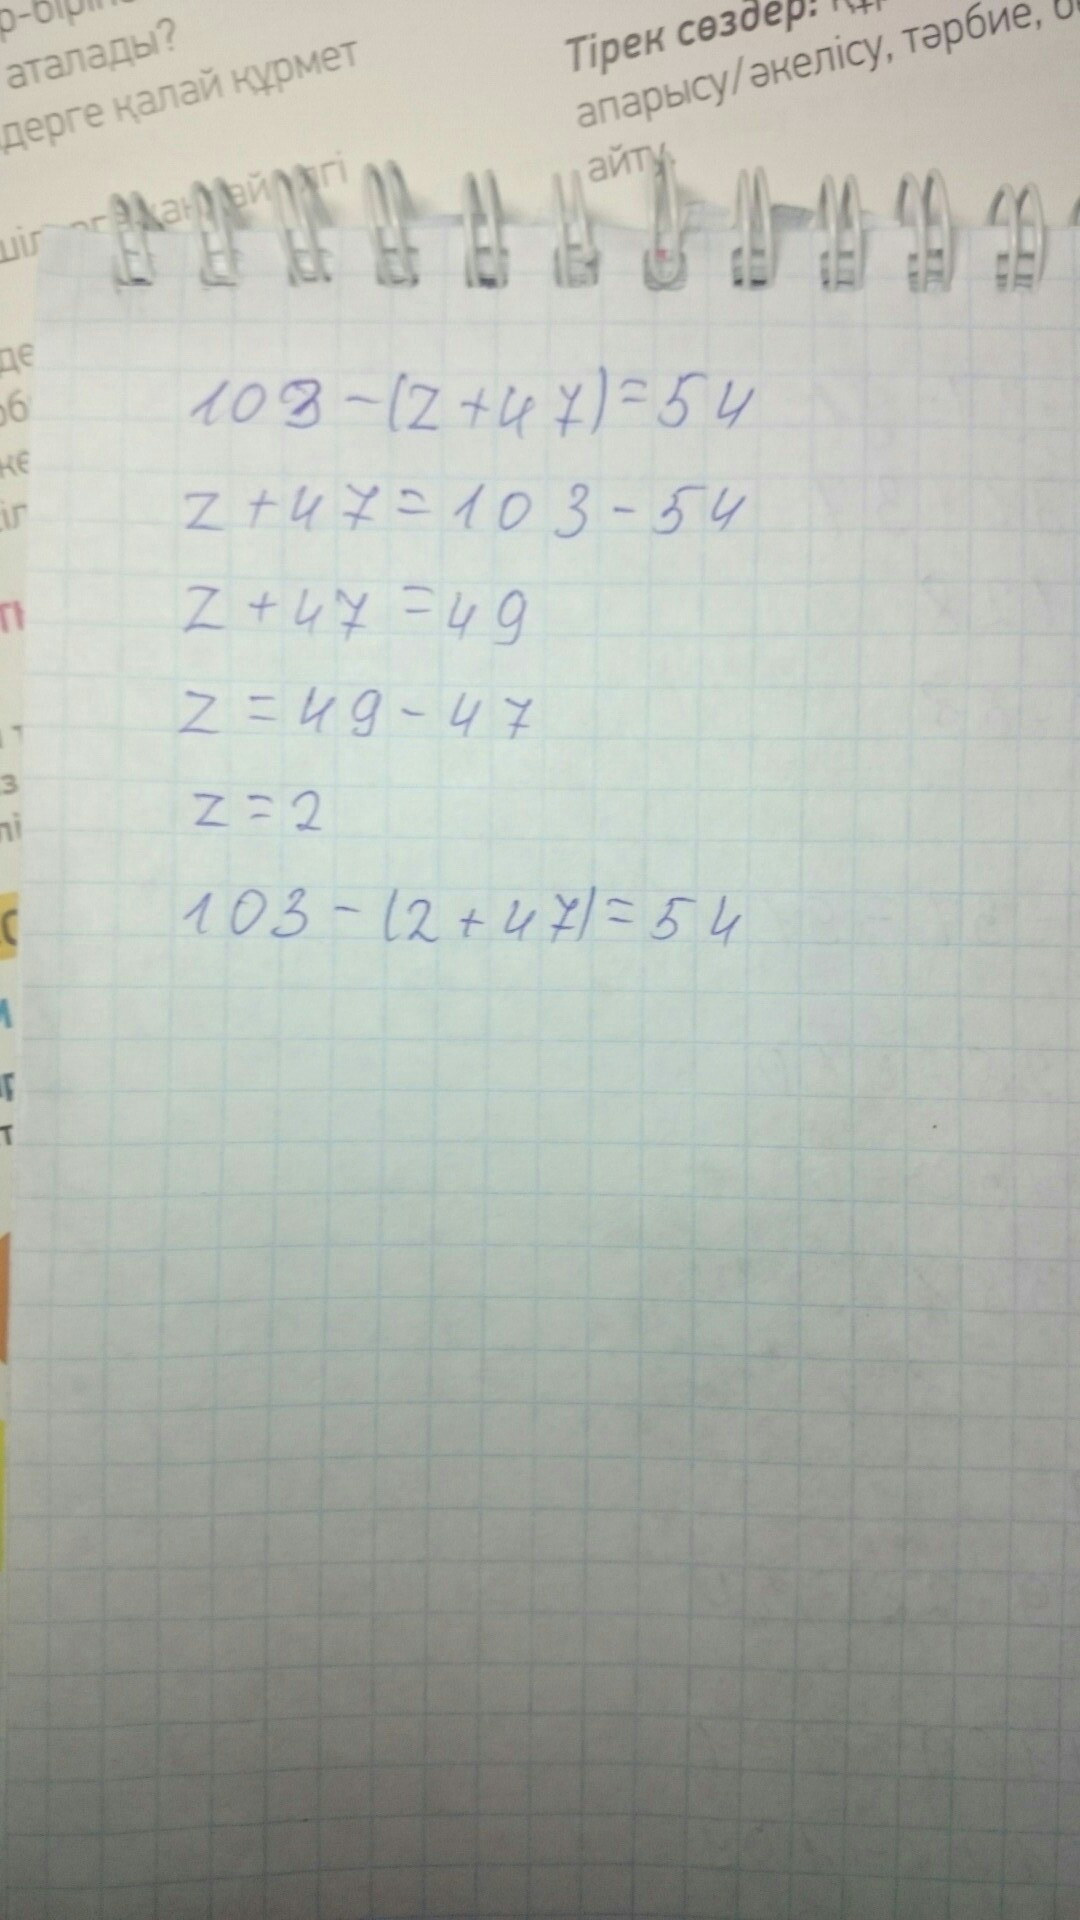 аталады?
дерге қалай құрмет
Тірек сөздер:
апарысу/әкелісу, тәрбие,
айту.
103-(z+47)=54
z+47=103-54
z+47=49
z=49-47
z=2
103-(2+47)=54